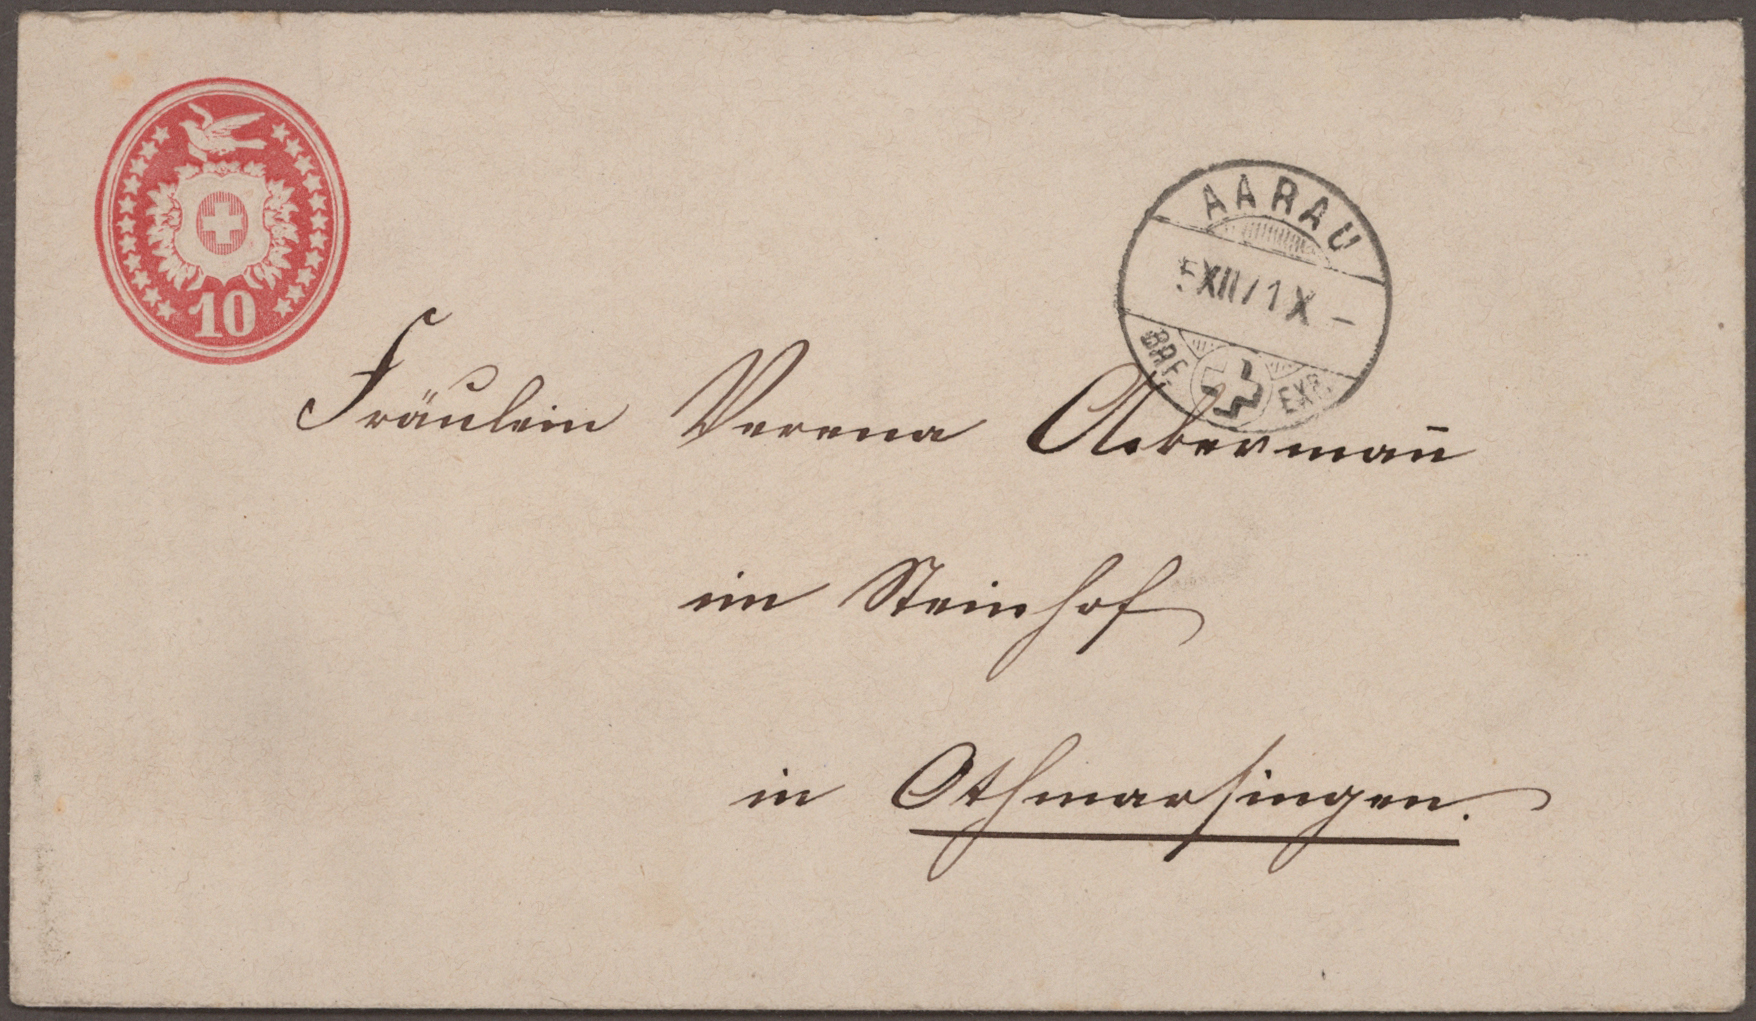 10
AARAU
5 XII 71 X –
BRF. EXP.
Fräulein Verena Ackerman̄
im Steinhof
in Othmarsingen.